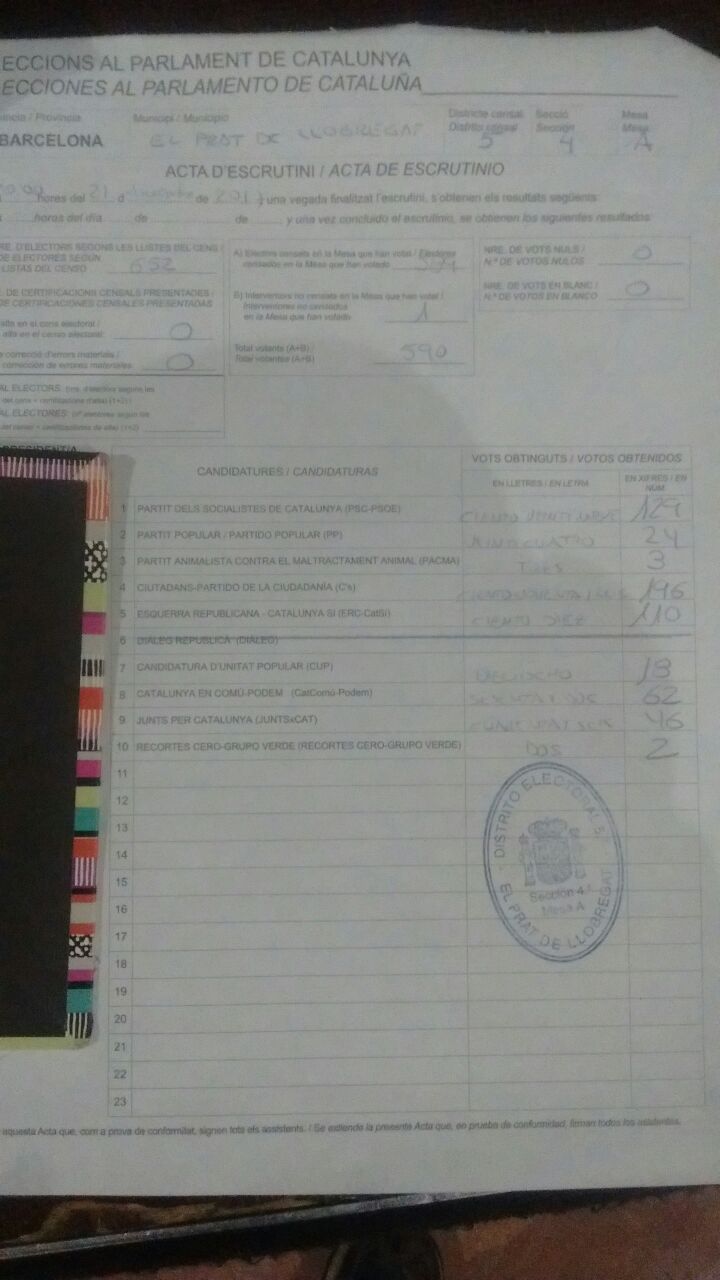 ECCIONS AL PARLAMENT DE CATALUNYA
ECCIONES AL PARLAMENTO DE CATALUÑA
incia / Provincia Municipi / Municipio Districte censal Secció Mesa
BARCELONA EL PRAT DE LLOBREGAT Distrito censal 5 Sección 4 Mesa A
ACTA D'ESCRUTINI / ACTA DE ESCRUTINIO
hores del 21 d de 201 y una vegada finalitzat l'escrutini, s'obtenen els resultats següents:
horas del día de de y una vez concluido el escrutinio, se obtienen los siguientes resultados:
RE. D'ELECTORS SEGONS LES LLISTES DEL CENS /
DE ELECTORES SEGÚN
LISTAS DEL CENSO 652
. DE CERTIFICACIONS CENSALS PRESENTADES /
DE CERTIFICACIONES CENSALES PRESENTADAS
alta en el cens electoral /
alta en el censo electoral: 0
correcció d'errors materials /
corrección de errores materiales 0
AL ELECTORS: (nre. d'electors segons les
del cens + certificacions d'alta) (1+2)
AL ELECTORES: (nº electores según las
del censo + certificaciones de alta) (1+2)
A) Electors censats en la Mesa que han votat / Electores
censados en la Mesa que han votado
B) Interventors no censats en la Mesa que han votat /
Interventores no censados
en la Mesa que han votado 1
Total votants (A+B) /
Total votantes (A+B) 590
NRE. DE VOTS NULS /
N.º DE VOTOS NULOS 0
NRE. DE VOTS EN BLANC /
N.º DE VOTOS EN BLANCO 0
PRESIDENT/A
CANDIDATURES / CANDIDATURAS VOTS OBTINGUTS / VOTOS OBTENIDOS
EN LLETRES / EN LETRA EN XIFRES / EN NÚM.
1 PARTIT DELS SOCIALISTES DE CATALUNYA (PSC-PSOE) CIENTO VEINTINUEVE 129
2 PARTIT POPULAR / PARTIDO POPULAR (PP) VEINTICUATRO 24
3 PARTIT ANIMALISTA CONTRA EL MALTRACTAMENT ANIMAL (PACMA) TRES 3
4 CIUTADANS-PARTIDO DE LA CIUDADANÍA (C's) 196
5 ESQUERRA REPUBLICANA - CATALUNYA SÍ (ERC-CatSí) CIENTO DIEZ 110
6 DIÀLEG REPUBLICÀ (DIÀLEG)
7 CANDIDATURA D'UNITAT POPULAR (CUP) DIECIOCHO 18
8 CATALUNYA EN COMÚ-PODEM (CatComú-Podem) 62
9 JUNTS PER CATALUNYA (JUNTSxCAT) 46
10 RECORTES CERO-GRUPO VERDE (RECORTES CERO-GRUPO VERDE) DOS 2
11
12
13
14
15
16
17
18
19
20
21
22
23
DISTRITO ELECTORAL 5.º
Sección 4.ª
Mesa A
EL PRAT DE LLOBREGAT
aquesta Acta que, com a prova de conformitat, signen tots els assistents. / Se extiende la presente Acta que, en prueba de conformidad, firman todos los asistentes.